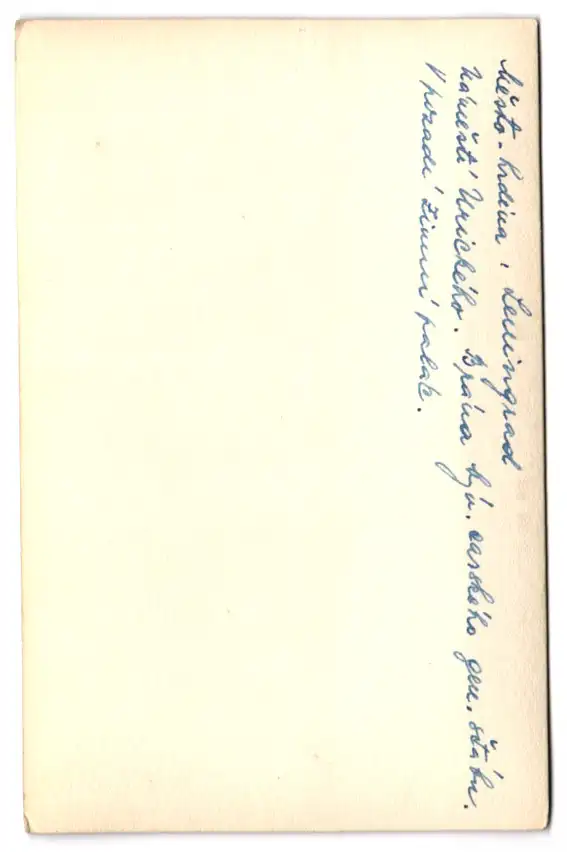 Město-hrdina, Leningrad
náměstí Urického. Brána býv. carského gen. štábu.
V pozadí Zimní palác.